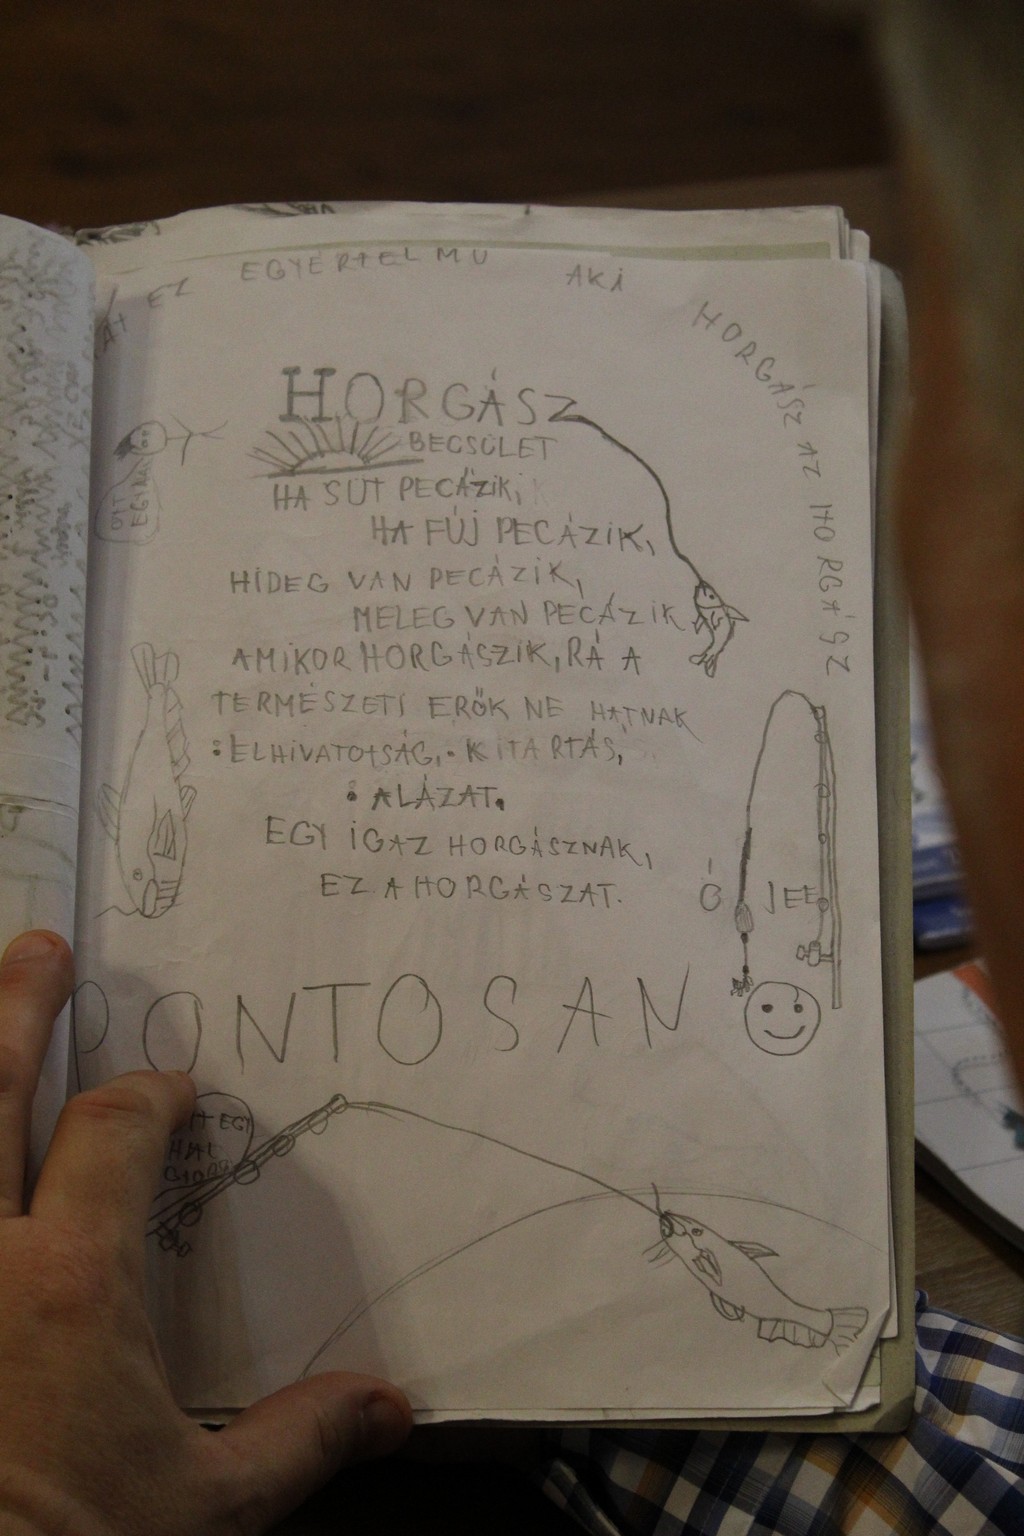 EZ EGYÉRTELMŰ AKI HORGÁSZ AZ HORGÁSZ
HORGÁSZ
BECSÜLET
HA SÜT PECÁZIK,
HA FÚJ PECÁZIK,
HIDEG VAN PECÁZIK,
MELEG VAN PECÁZIK
AMIKOR HORGÁSZIK, RÁ A
TERMÉSZETI ERŐK NE HATNAK
• ELHIVATOTSÁG, • KITARTÁS,
• ALÁZAT.
EGY IGAZ HORGÁSZNAK,
EZ A HORGÁSZAT.
Ó JEE
PONTOSAN
EGY
HAL